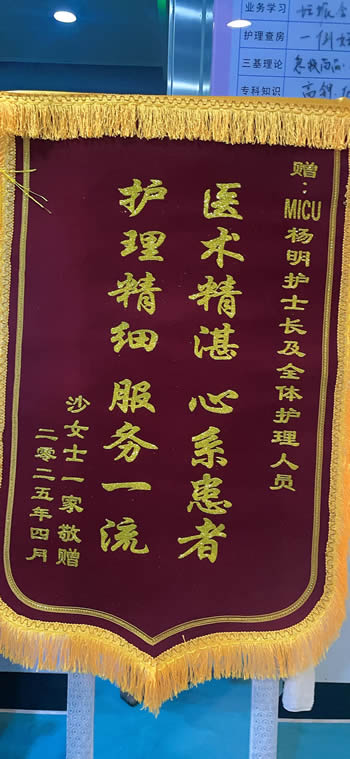 业务学习
护理查房
一例
三基理论
专科知识
赠：MICU杨明护士长及全体护理人员
医术精湛 心系患者
护理精细 服务一流
沙女士一家敬赠
二零二五年四月